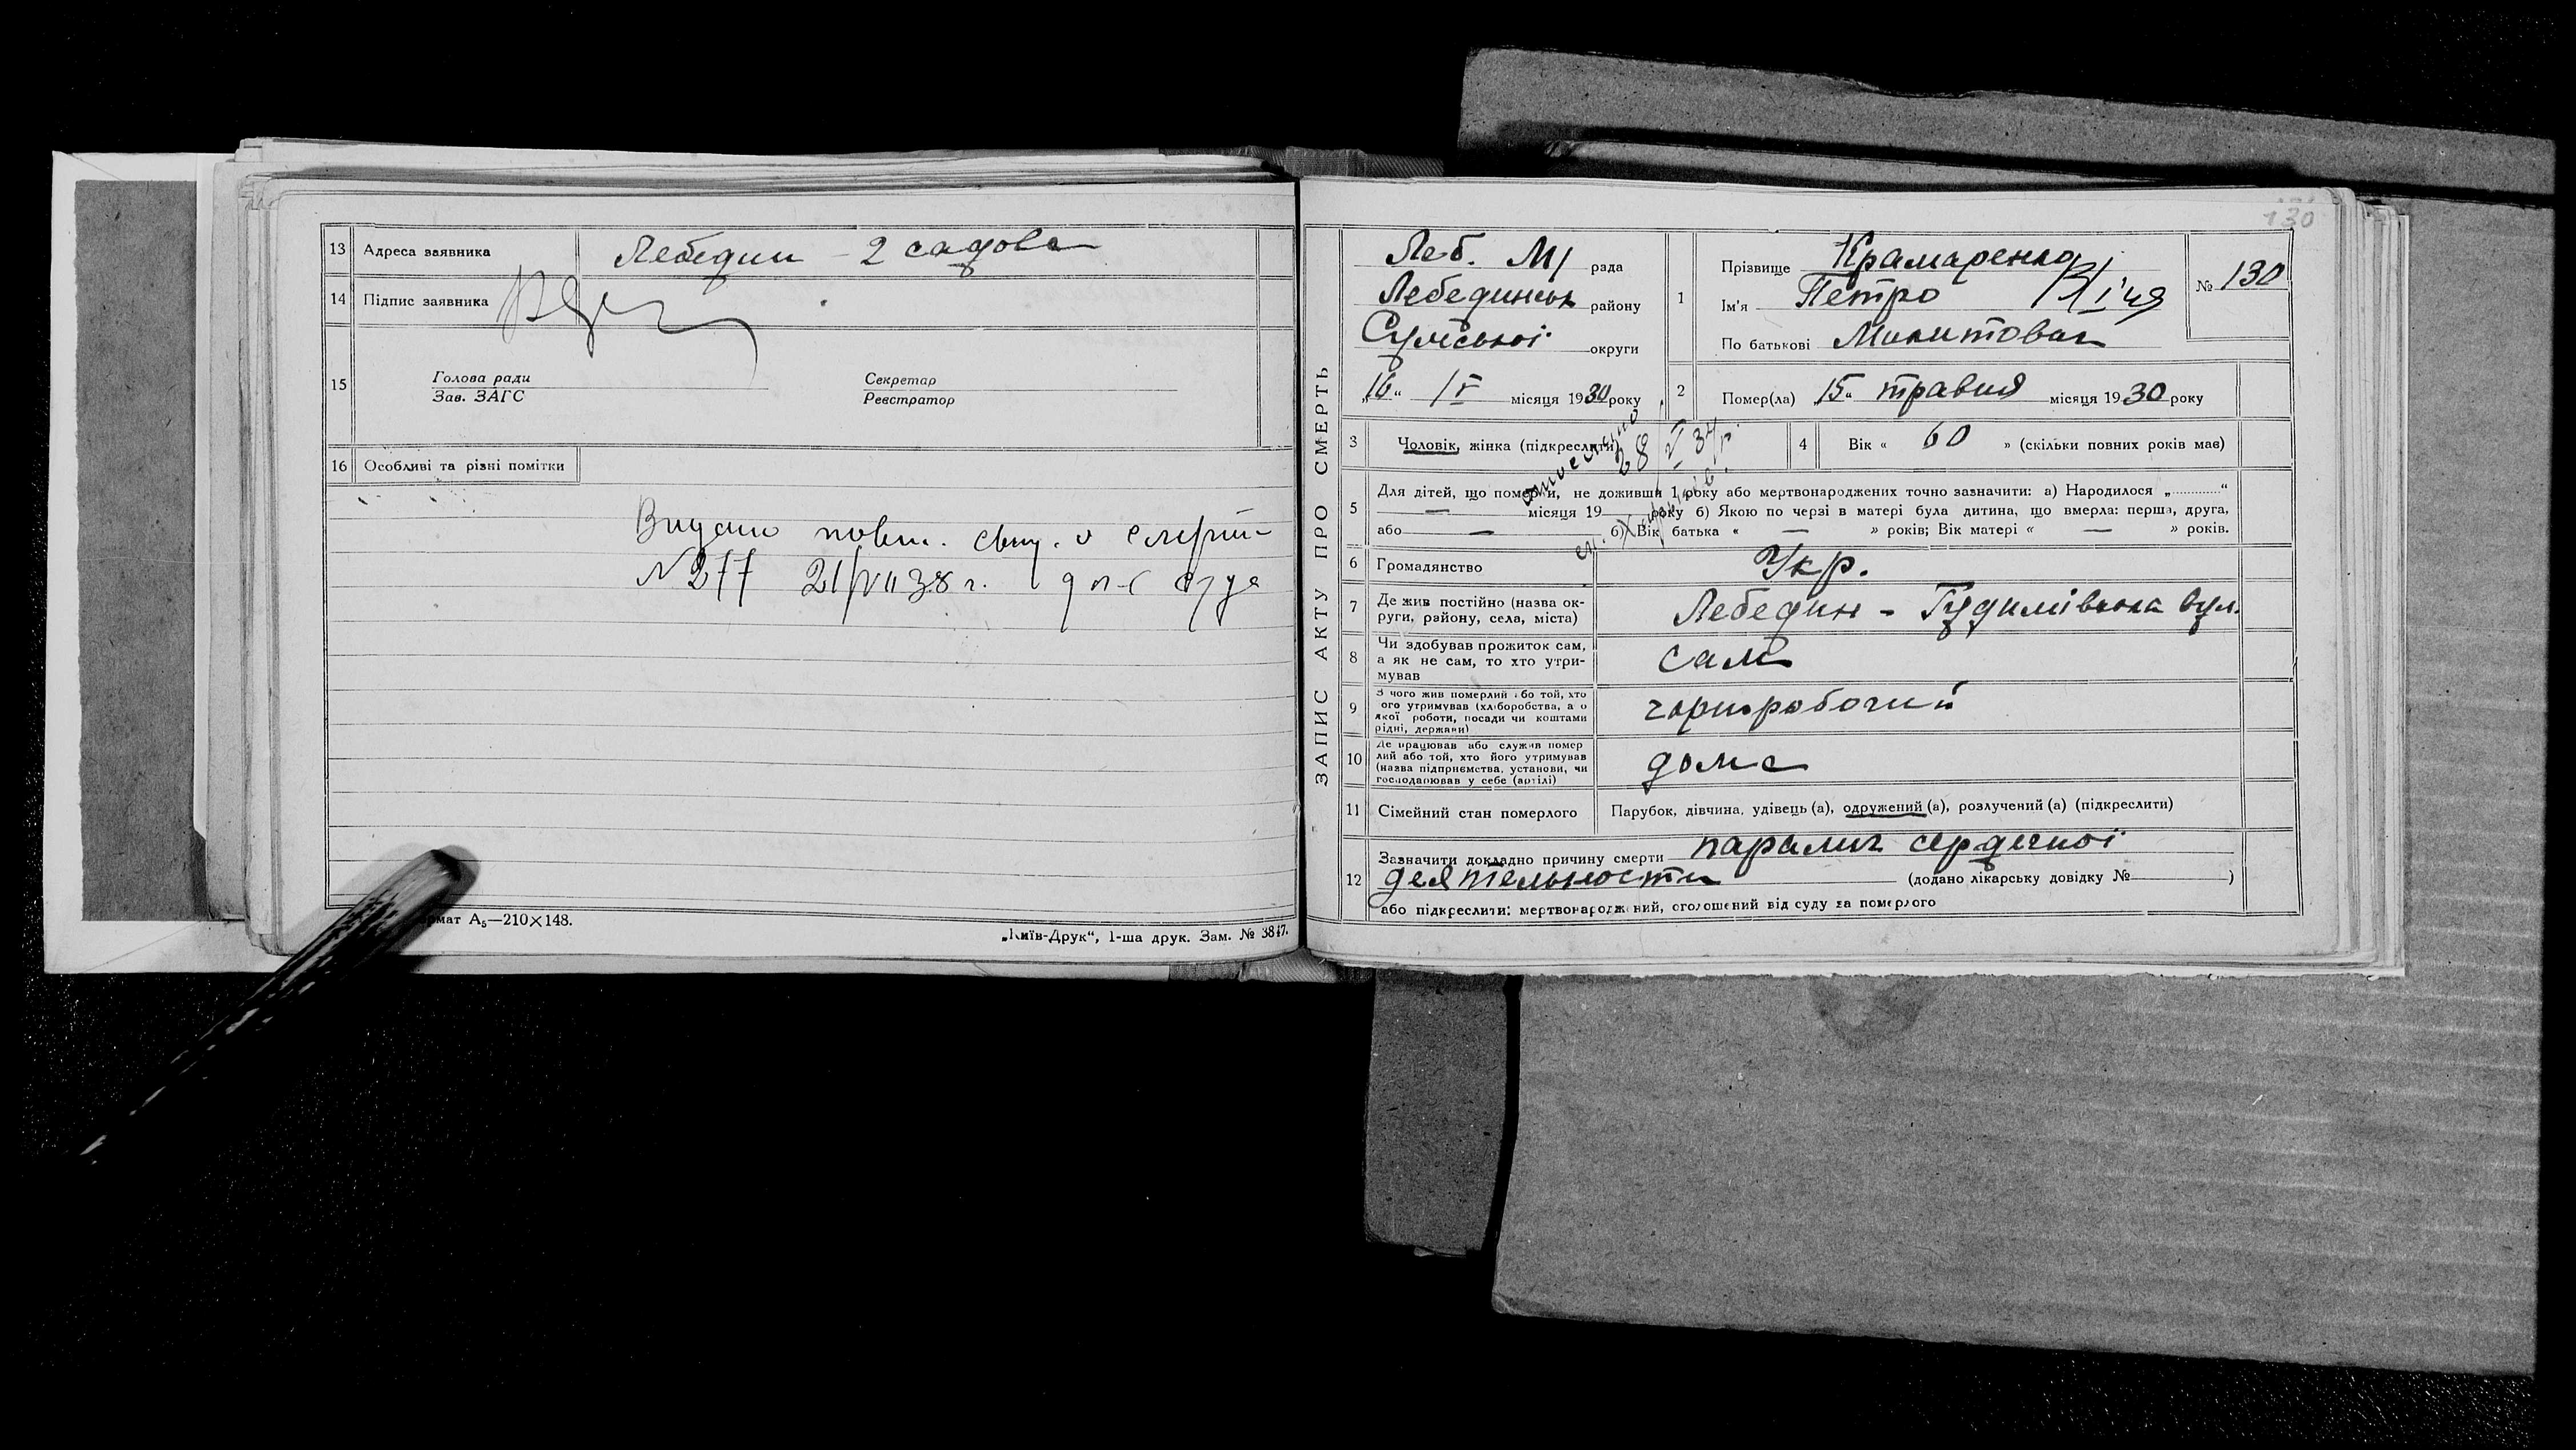 13 Адреса заявника Лебедин - 2 садова
14 Підпис заявника
15 Голова ради Секретар
Зав. ЗАГС Реєстратор
16 Особливі та різні помітки
Видано повт. свид. о смерти
N 277 21/VII 38 г. для суда
Формат А5—210×148.
„Київ-Друк“, 1-ша друк. Зам. № 3847.
130
ЗАПИС АКТУ ПРО СМЕРТЬ
Леб. М/ рада
Лебединськ району
Сумської округи
„16“ /V місяця 1930 року
1 Прізвище Крамаренко
Ім'я Петро
По батькові Микитович
№ 130
2 Помер(ла) „15“ травня місяця 1930 року
3 Чоловік, жінка (підкреслити)
28/VI 34
4 Вік « 60 » (скільки повних років має)
5 Для дітей, що померли, не доживши 1 року або мертвонароджених точно зазначити: а) Народилося „............“
— місяця 19 року б) Якою по черзі в матері була дитина, що вмерла: перша, друга,
або — б) Вік батька « — » років; Вік матері « — » років.
6 Громадянство Укр.
7 Де жив постійно (назва округи, району, села, міста) Лебедин - Гудимівська вул.
8 Чи здобував прожиток сам,
а як не сам, то хто утримував
сам
9 З чого жив померлий або той, хто
його утримував (хліборобства, а о
якої роботи, посади чи коштами
рідні, держави)
чорноробочий
10 Де працював або служив помер
лий або той, хто його утримував
(назва підприємства, установи, чи
господарював у себе (артілі)
дома
11 Сімейний стан померлого Парубок, дівчина, удівець (а), одружений (а), розлучений (а) (підкреслити)
12 Зазначити докладно причину смерти паралич сердечної
деятельности (додано лікарську довідку № )
або підкреслити: мертвонароджений, оголошений від суду за померлого